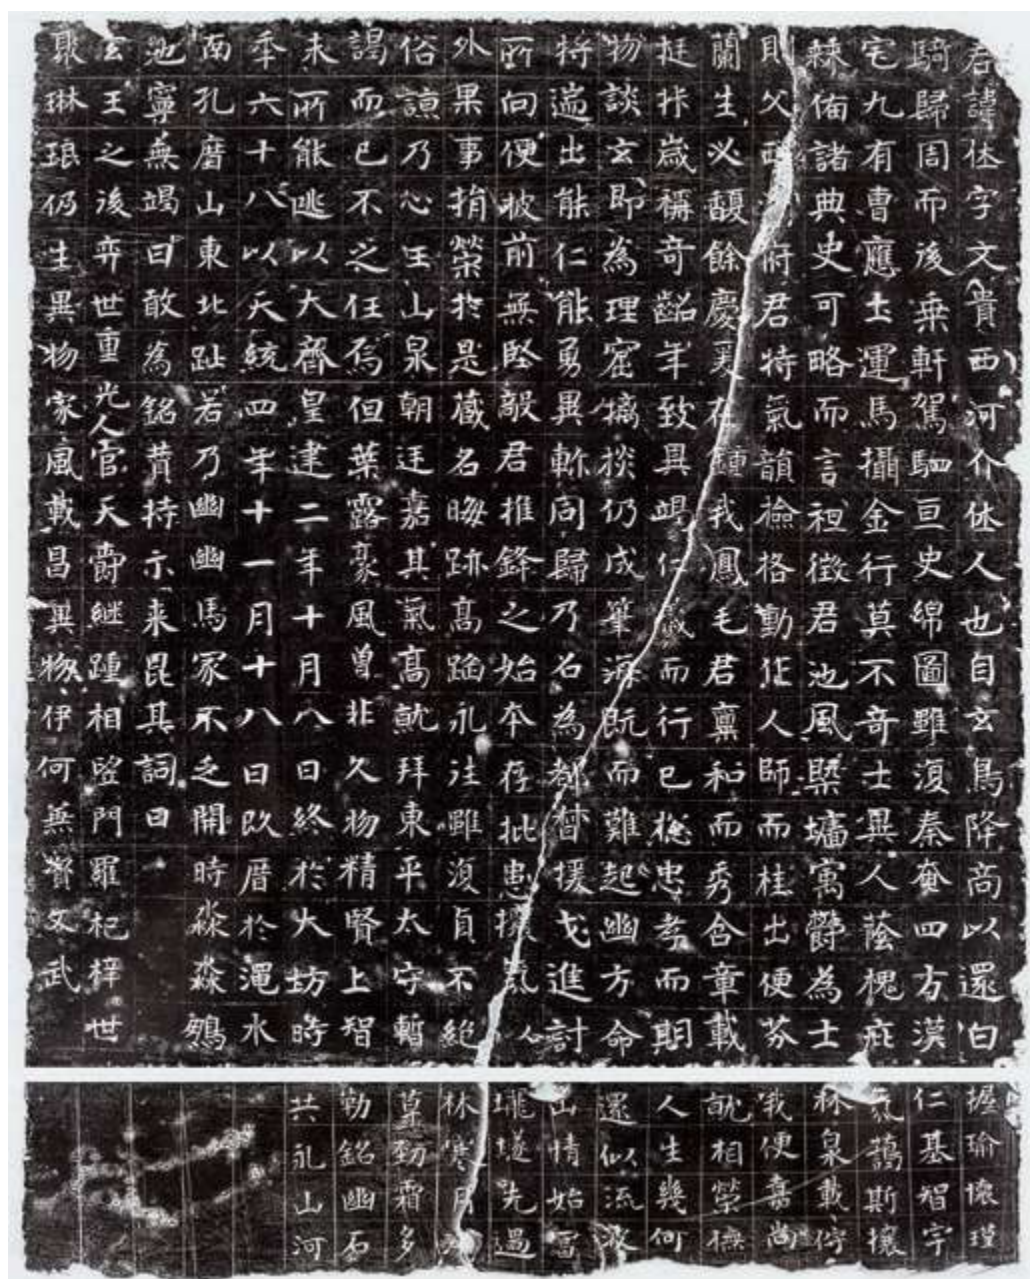 君諱休字文貴西河介休人也自玄鳥降商以還白
騎歸周而後乗軒駕駟亘史綿圖雖復秦奄四方漢
宅九有曹應土運馬攝金行莫不奇士異人蔭槐庇
棘俻諸典史可略而言祖徵君池風槩壚寓欝為士
則父 府君特氣韻撿格動作人師而桂出便芬
蘭生必馥餘慶 在鍾我鳳毛君禀和而秀含章載
挺丱歲稱奇齠年致異 仁 而行行已 忠孝而期
物談玄即為理窟摛掞仍成筆海既而難起幽方命
将遄出能仁能勇異軫同歸乃召為都督援戈進討
所向便披前無堅敵君推鋒之始夲存 患 氛人
外果事捐榮於是蔵名晦跡高蹈永法雖復貞不絶
俗諒乃心王山泉朝廷嘉其氣高就拜東平太守暫
謁而已不之任焉但葉露豪風曽非久物精賢上智
未所能逃以大齊皇建二年十月八日終於大坊時
年六十八以天統四年十一月十八日改厝於渑水
南孔磨山東北趾若乃幽幽馬冢不乏開時淼淼鵶
池寧無竭日敢為銘昔持示来昆其詞曰
玄王之後弈世重光人官天爵継踵相望門羅杞梓世
聚琳琅仍生異物家風載昌異物伊何無資文武
握瑜懐瑾
仁基智宇
鵲斯攘
林泉載佇
我便嘉尚
就相榮撫
人生幾何
還似流波
山情始
壠燧先過
林寒月
草勁霜多
勒銘幽石
共永山河